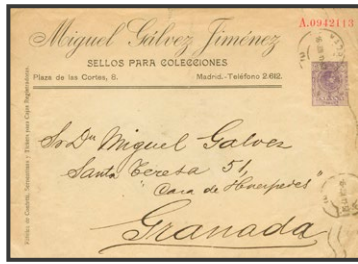 A.0942113
Miguel Gálvez Jiménez
SELLOS PARA COLECCIONES
Plaza de las Cortes, 8. Madrid.-Teléfono 2.662.
Sr Dn Miguel Galvez
Santa Teresa 51,
"Casa de Huerpedes"
Granada